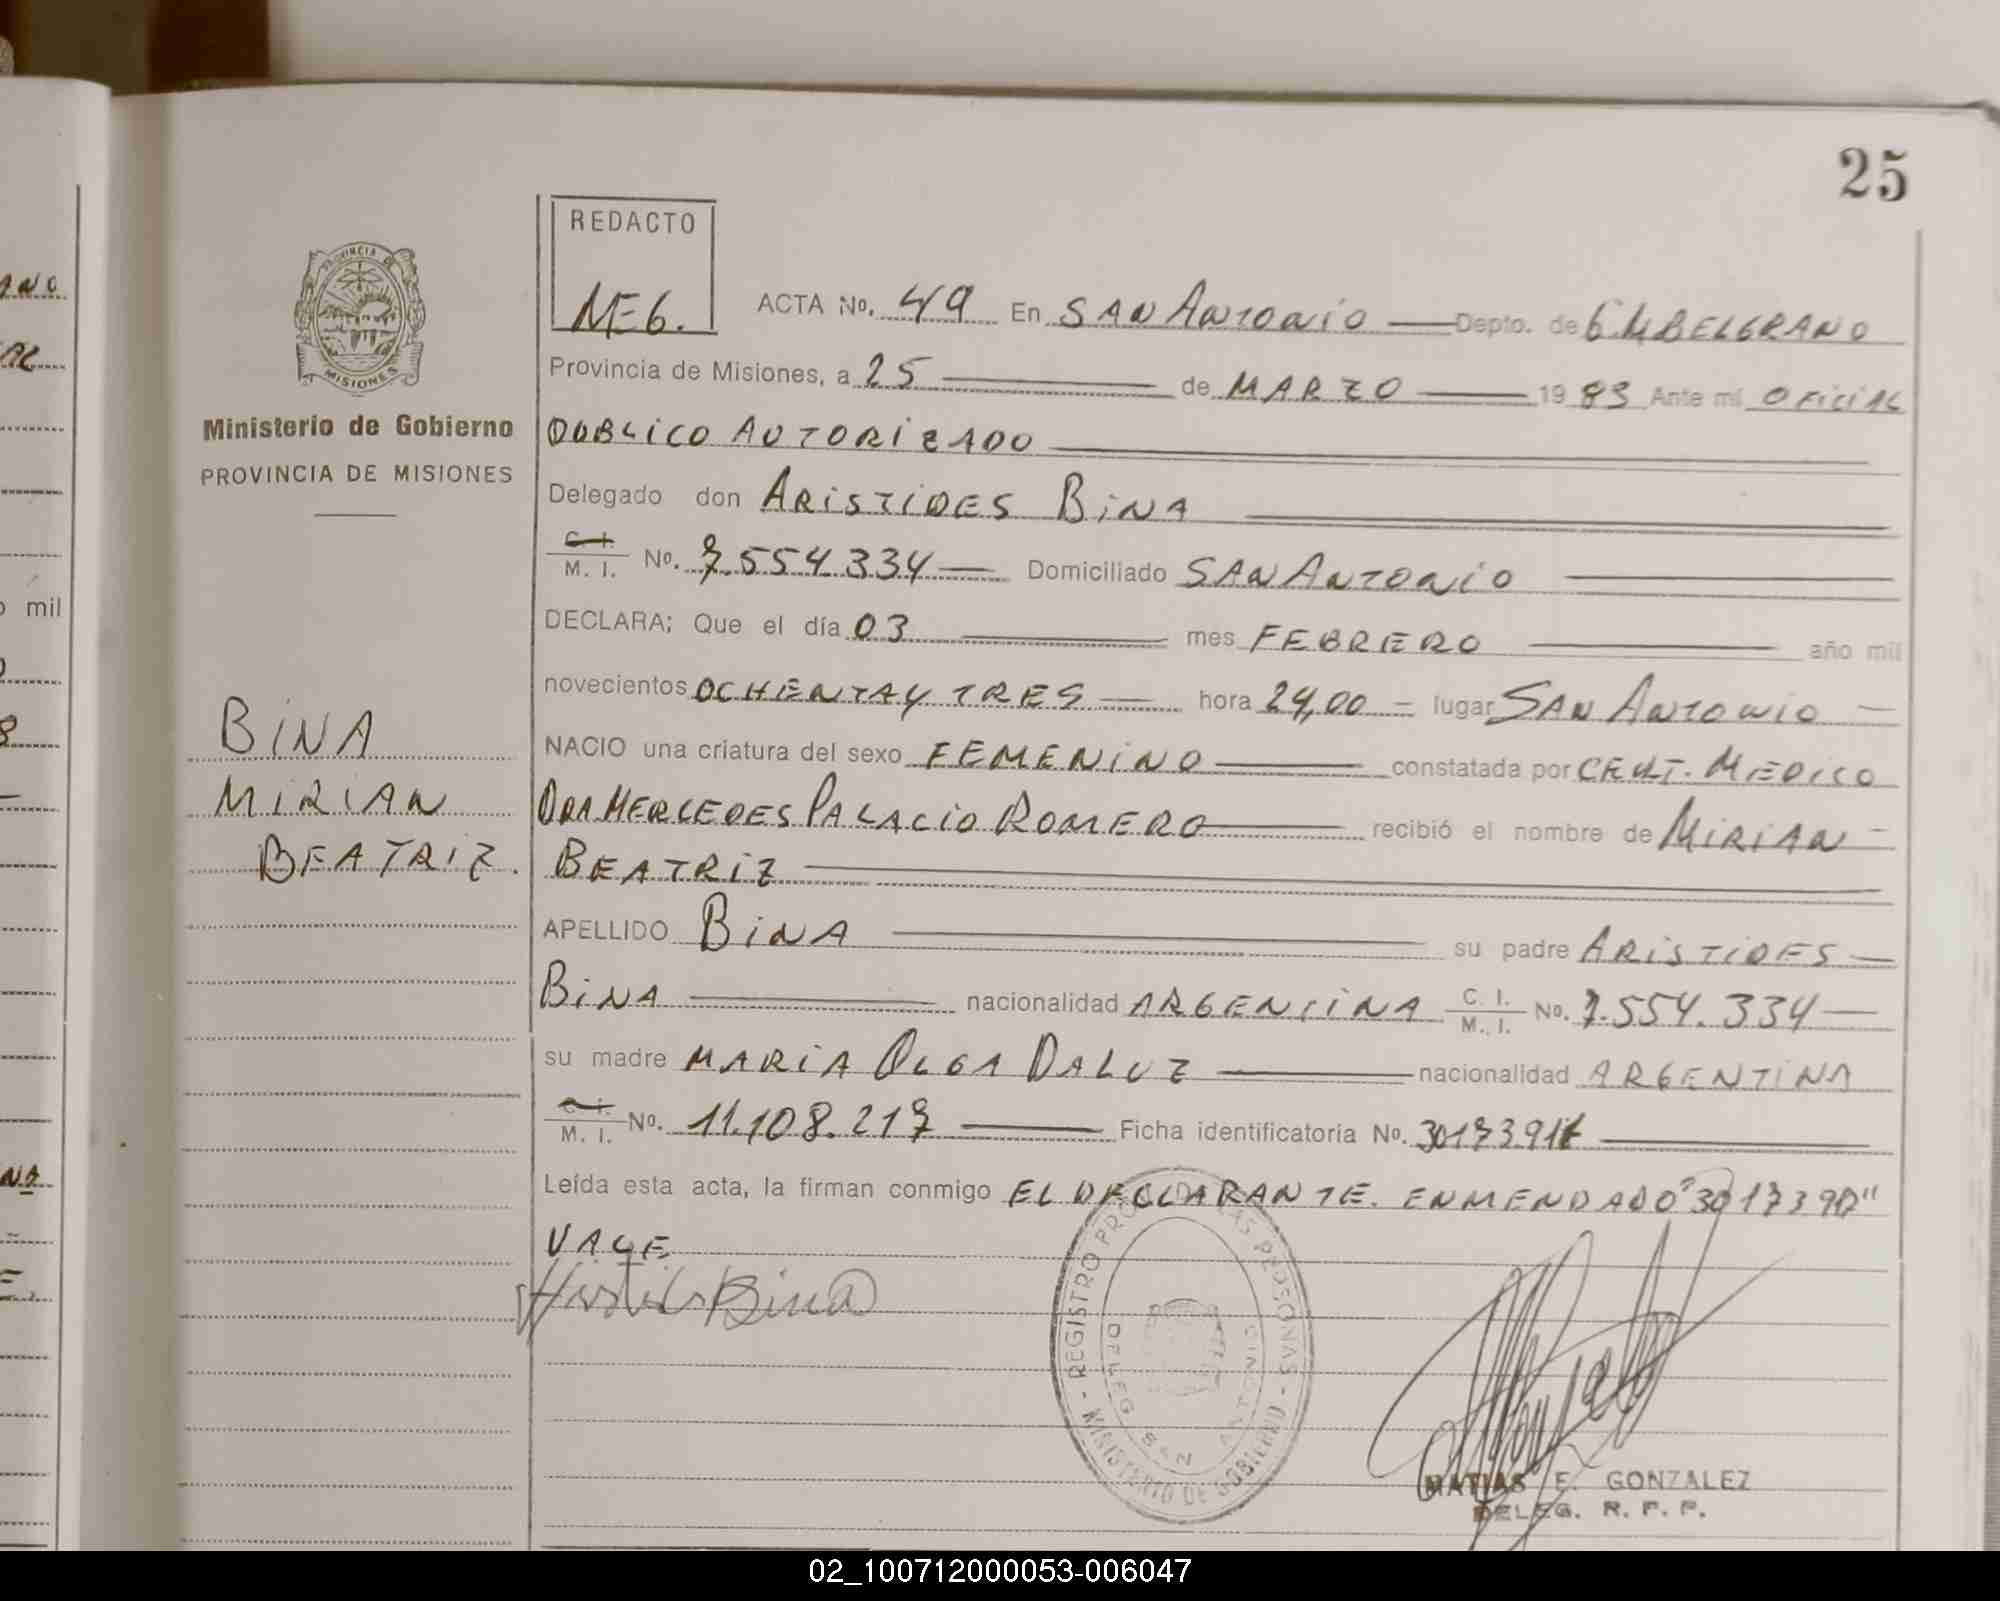 25
REDACTO
MEG.
ACTA No. 49 En SAN ANTONIO Depto. de G.M BELGRANO
Provincia de Misiones, a 25 de MARZO 1983 Ante mí OFICIAL
PUBLICO AUTORIZADO
Delegado don ARISTIDES BINA
C. I. / M. I. No. 7.554.334 Domiciliado SAN ANTONIO
DECLARA; Que el día 03 mes FEBRERO año mil
novecientos OCHENTA Y TRES hora 24,00 lugar SAN ANTONIO
NACIO una criatura del sexo FEMENINO constatada por CERT. MEDICO
DRA MERCEDES PALACIO ROMERO recibió el nombre de MIRIAN
BEATRIZ
APELLIDO BINA su padre ARISTIDES
BINA nacionalidad ARGENTINA C. I. / M. I. No. 7.554.334
su madre MARIA OLGA DALUZ nacionalidad ARGENTINA
C. I. / M. I. No. 11.108.217 Ficha identificatoria No.
Leída esta acta, la firman conmigo EL DECLARANTE. ENMENDADO
VALE
Bina
PROVINCIA DE
MISIONES
Ministerio de Gobierno
PROVINCIA DE MISIONES
BINA
MIRIAN
BEATRIZ.
REGISTRO PROV. DE LAS PERSONAS
MINISTERIO DE GOBIERNO
DELEG. SAN ANTONIO
MATIAS E. GONZALEZ
DELEG. R. P. P.
ANO
AL
o mil
8
02_100712000053-006047